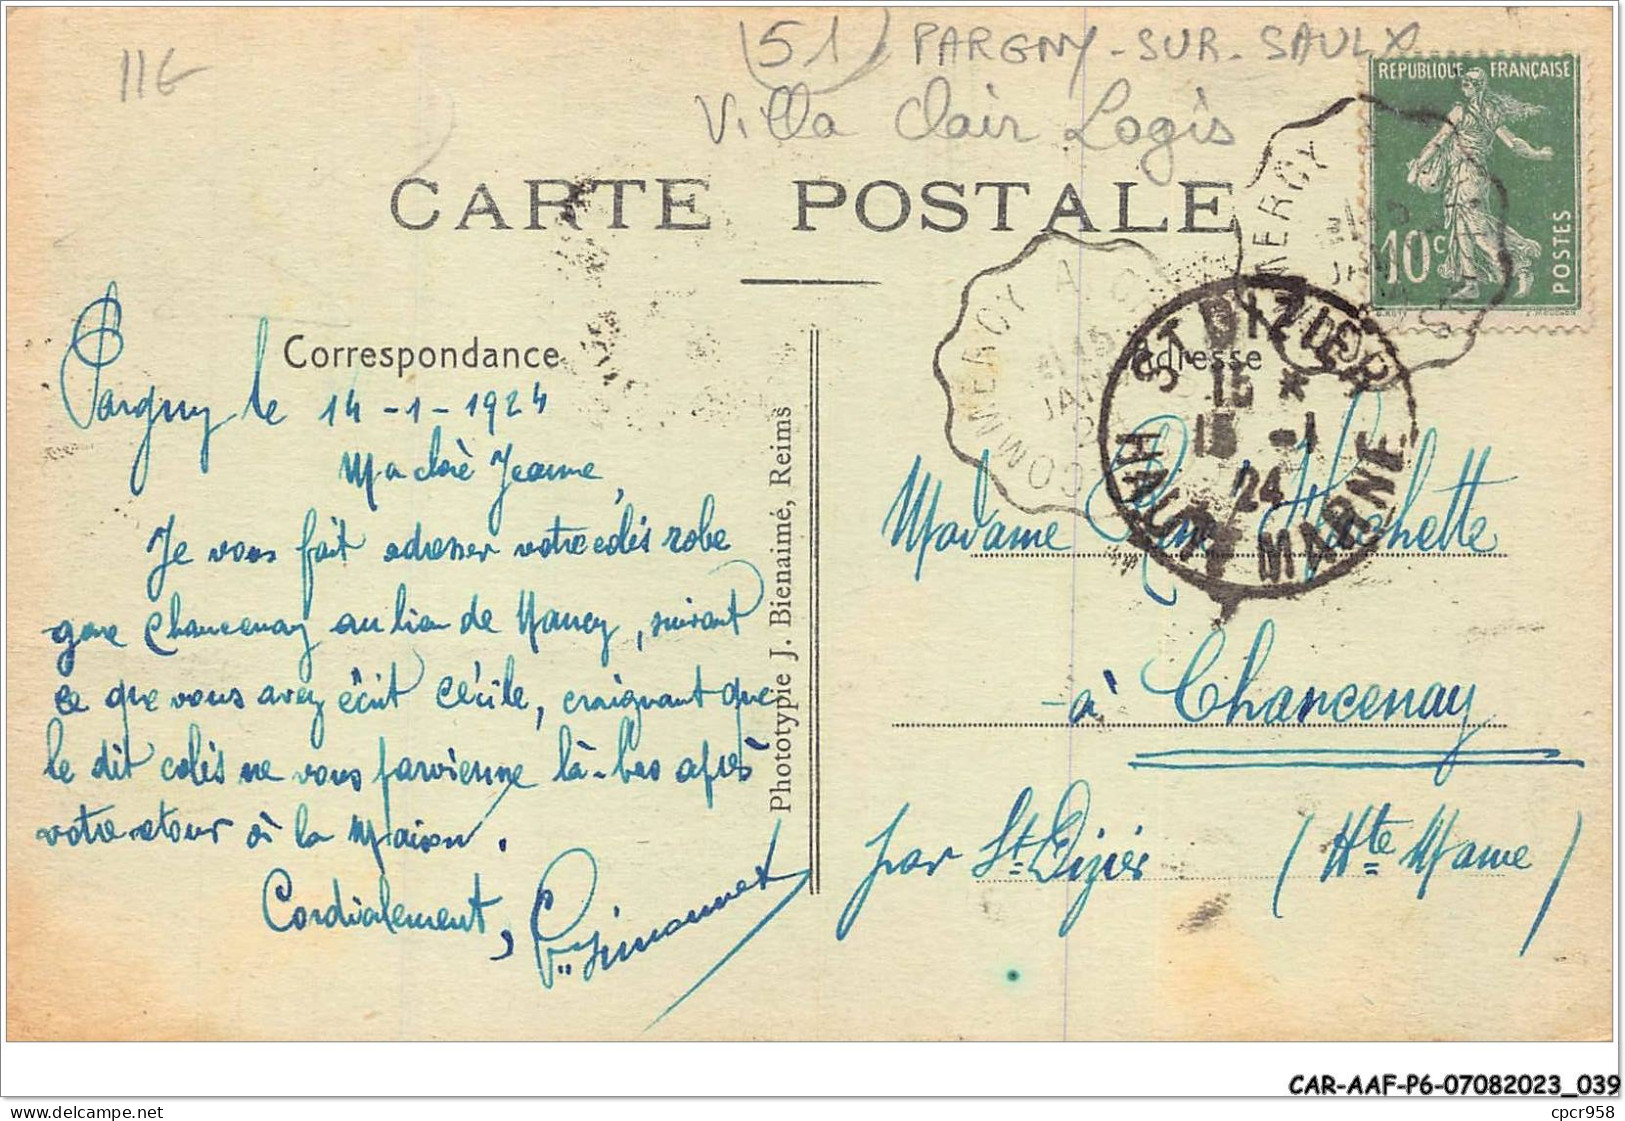 11€
(51) PARGNY-SUR-SAULX
Villa Clair Logis
REPUBLIQUE FRANÇAISE
10c
POSTES
CARTE POSTALE
Correspondance
Adresse
COMMERCY A
MERCY
ST DIZIER
15 *
15 -1
24
HAUTE MARNE
Pargny le 14-1-1924
Ma Jeanne,
Je vous fait adresser votre colis robe
gare Chancenay au lieu de Nancy, suivant
ce que vous avez écrit Cécile, craignant que
le dit colis ne vous parvienne là-bas après
votre retour à la Maison.
Cordialement,
Madame Hachette
à Chancenay
par St Dizier (Hte Marne)
Phototypie J. Bienaimé, Reims
CAR-AAF-P6-07082023_039
www.delcampe.net
cpcr958